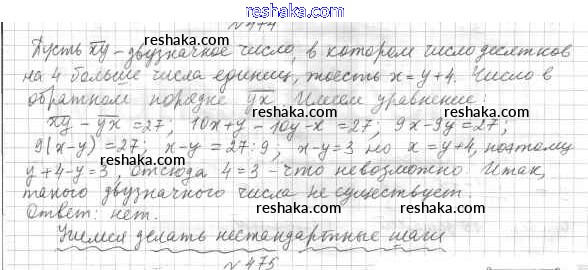 reshaka.com
№ 474
Пусть xy - двузначное число, в котором число десятков
reshaka.com reshaka.com
на 4 больше числа единиц, тоесть x = y + 4. Число в
обратном порядке yx. Имеем уравнение:
reshaka.com reshaka.com
xy - yx = 27; 10x + y - 10y - x = 27; 9x - 9y = 27;
9(x - y) = 27; x - y = 27 : 9; x - y = 3 но x = y + 4, поэтому
reshaka.com reshaka.com
y + 4 - y = 3, отсюда 4 = 3 - что невозможно Итак,
такого двузначного числа не существует.
reshaka.com reshaka.com
Ответ: нет.
Учимся делать нестандартные шаги
reshaka.com
№ 475